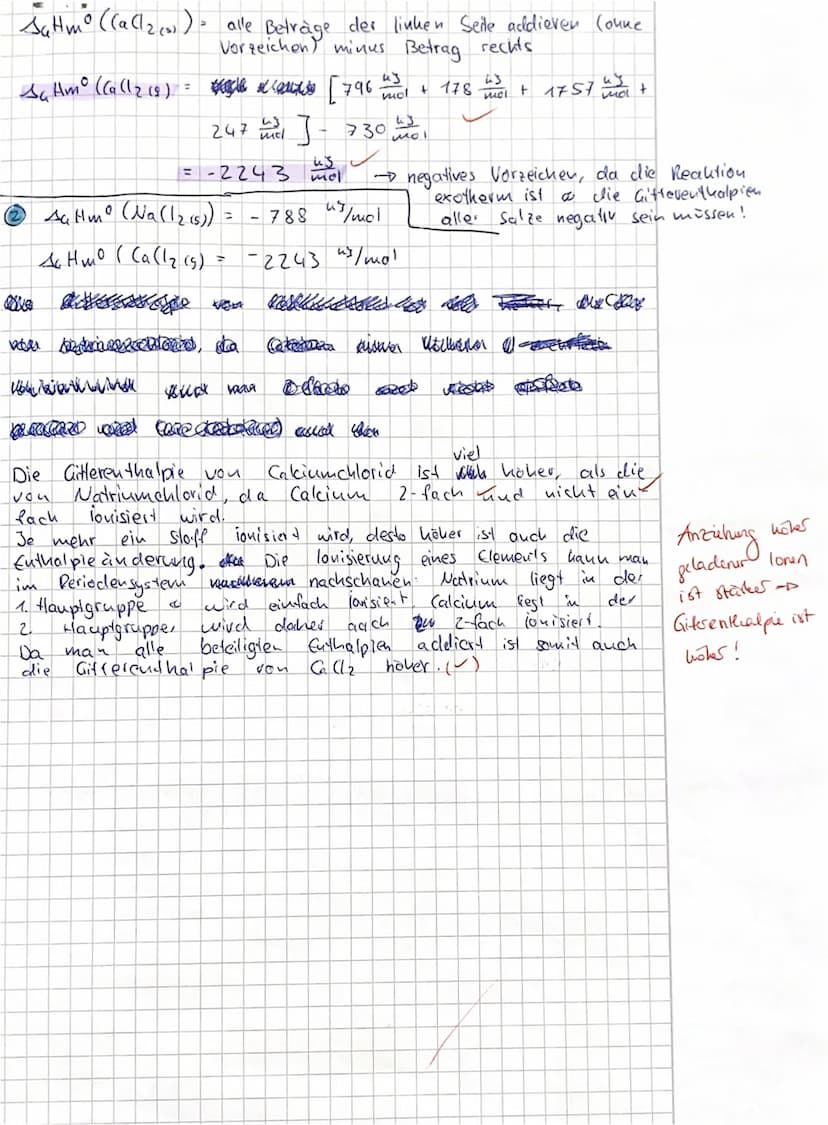 ΔGHm⁰ (CaCl2(s)) = alle Beträge der linken Seite addieren (ohne
Vorzeichen) minus Betrag rechts
ΔGHm⁰ (CaCl2(s) = [796 kJ/mol + 178 kJ/mol + 1757 kJ/mol +
247 kJ/mol ] - 730 kJ/mol
= -2243 kJ/mol → negatives Vorzeichen, da die Reaktion
exotherm ist & die Gitterenthalpien
aller Salze negativ sein müssen!
② ΔGHm⁰ (NaCl2(s)) = - 788 kJ/mol
ΔGHm⁰ (CaCl2(s) = -2243 kJ/mol
viel
Die Gitterenthalpie von Calciumchlorid ist höher, als die
von Natriumchlorid, da Calcium 2-fach und nicht ein-
fach ionisiert wird.
Je mehr ein Stoff ionisiert wird, desto höher ist auch die
Enthalpieänderung. Die Ionisierung eines Elements kann man
im Periodensystem nachschauen. Natrium liegt in der
1. Hauptgruppe & wird einfach ionisiert, Calcium liegt in der
2. Hauptgruppe, wird daher auch 2-fach ionisiert.
Da man alle beteiligten Enthalpien addiert ist somit auch
die Gitterenthalpie von CaCl2 höher. (✓)
Anziehung höher
geladener Ionen
ist stärker →
Gitterenthalpie ist
höher!